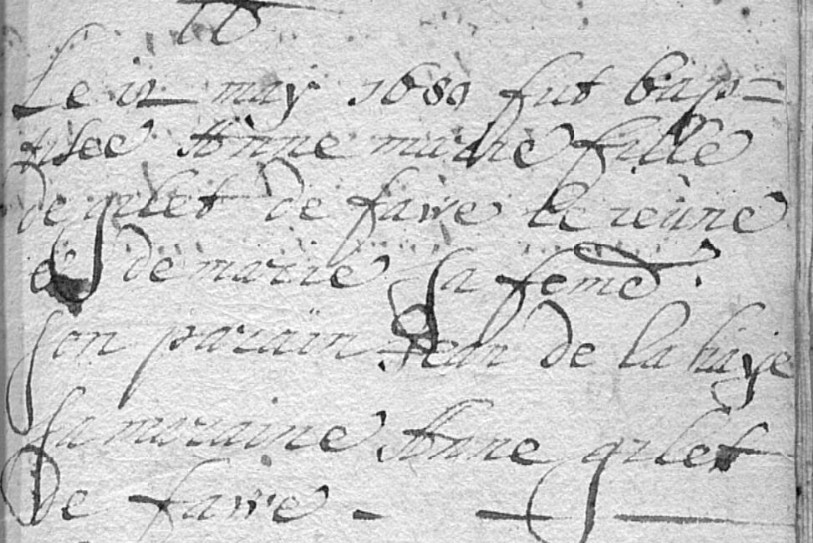 Le 12 may 1681 fut bap=
tisee Anne marie fille
de gilet de fawe le jeune
et de marie sa feme.
son parain Jean de la haye
sa maraine Anne gilet
de fawe